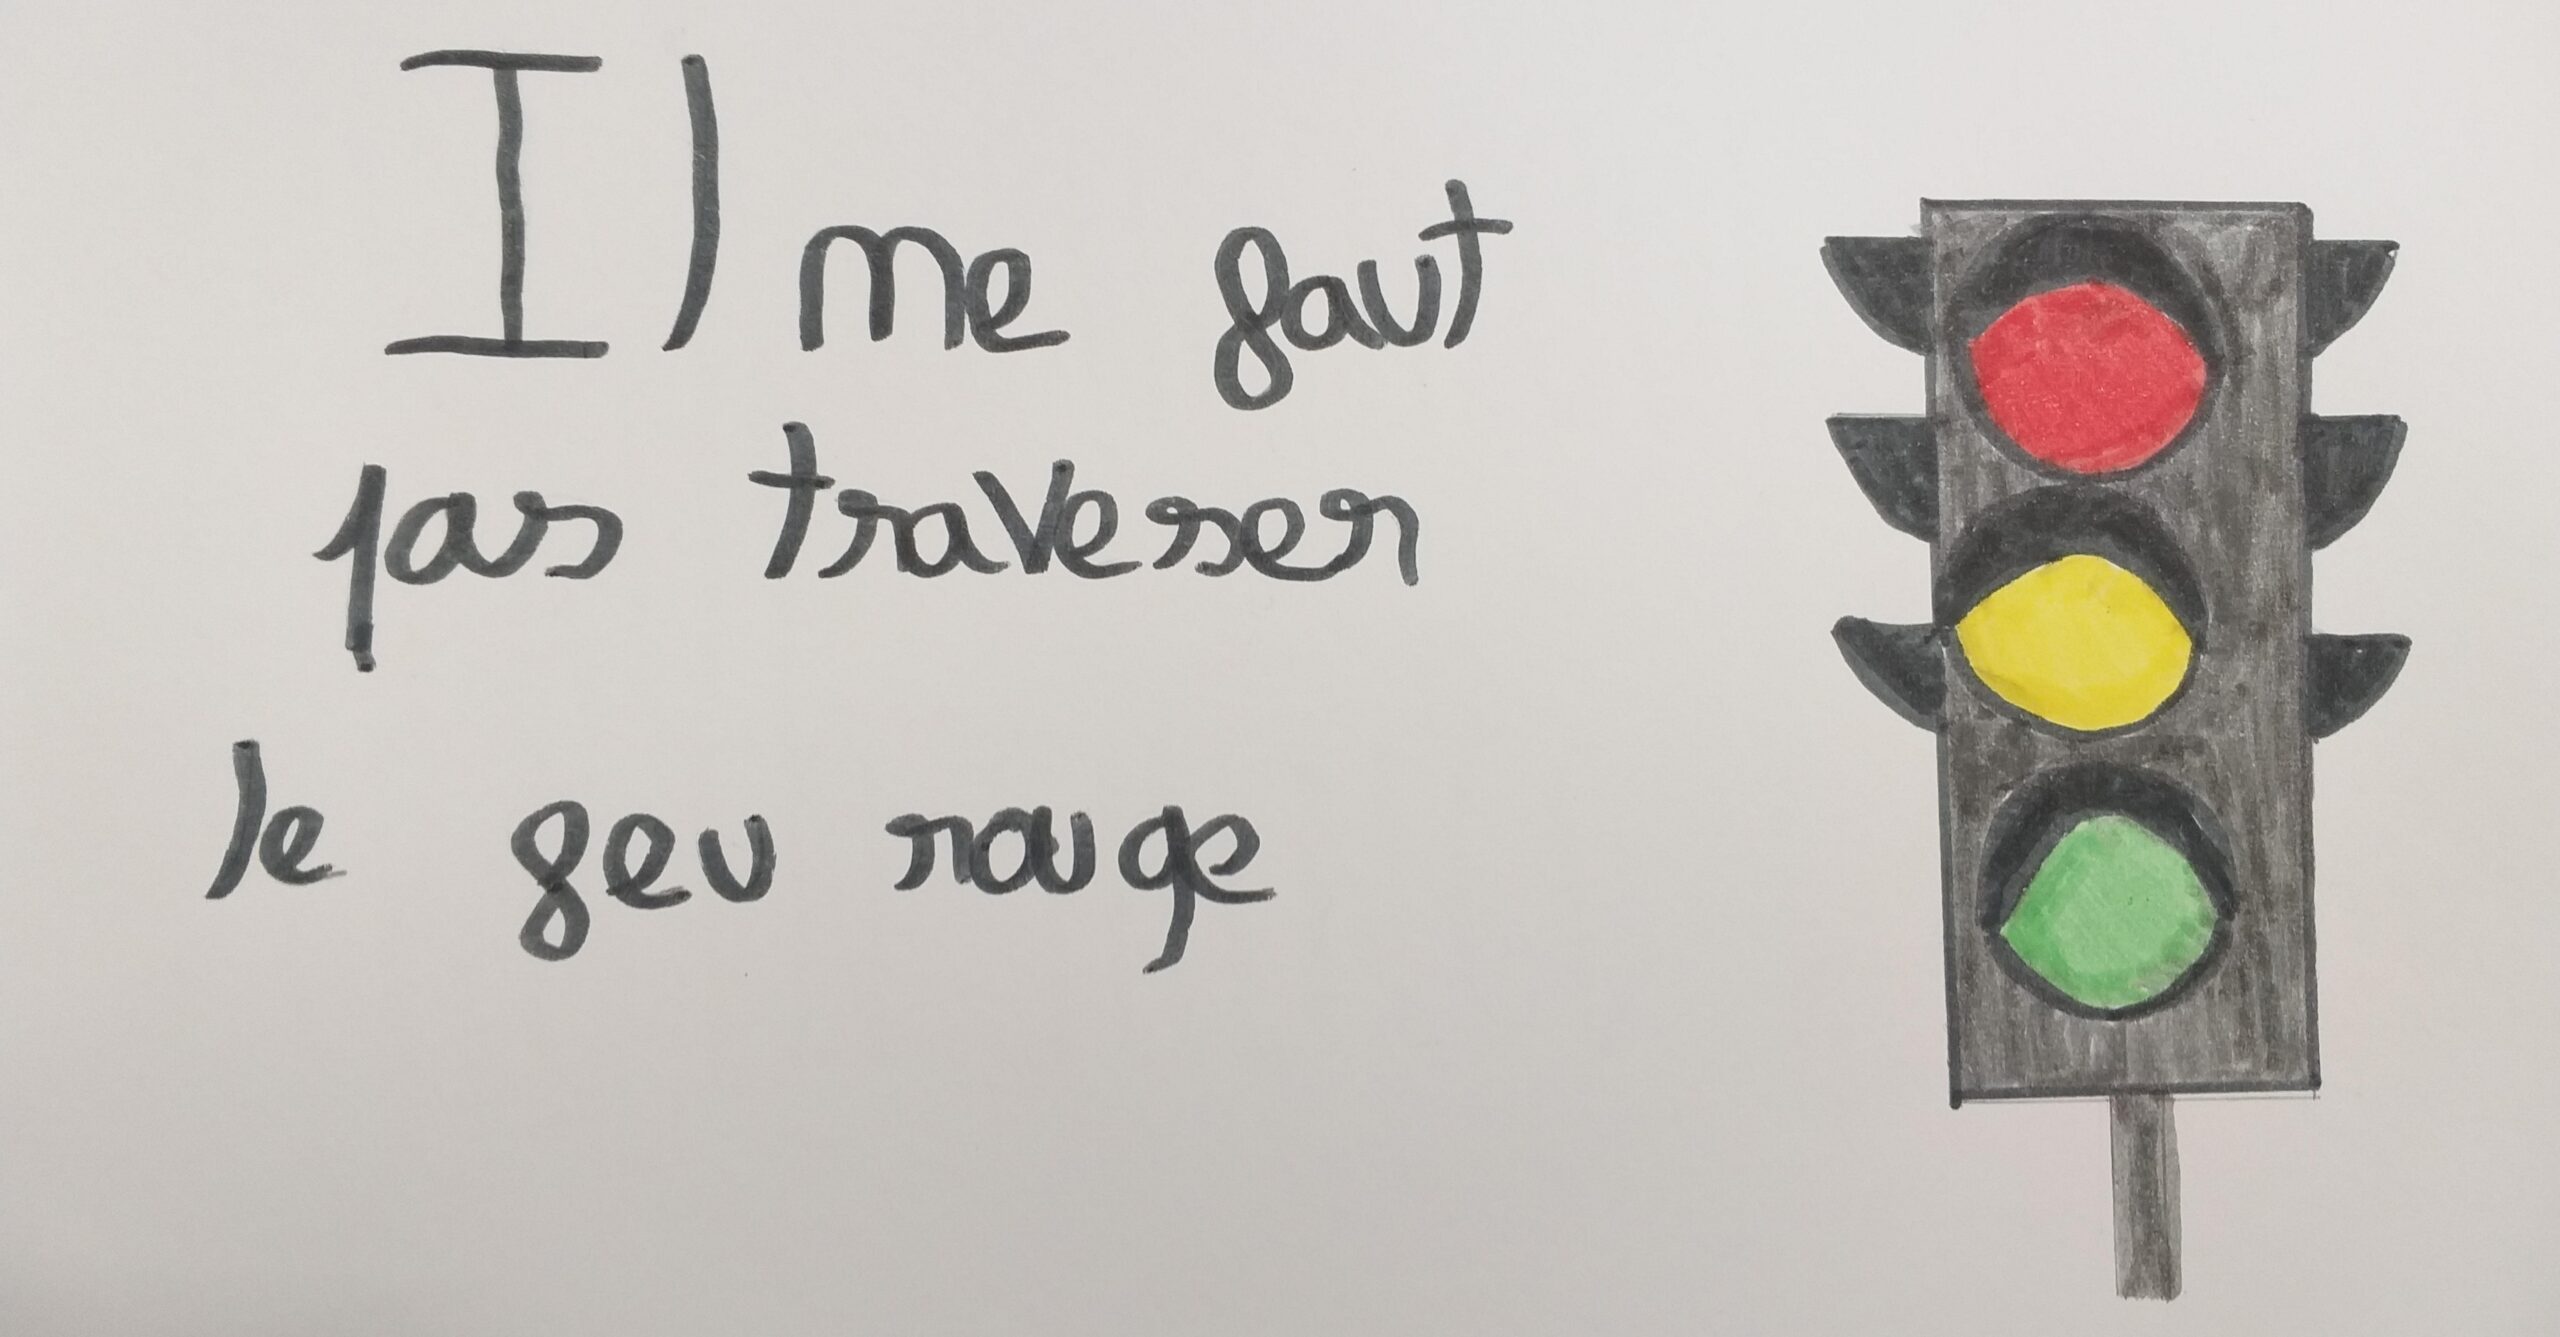 Il me faut
pas traveser
le feu rouge